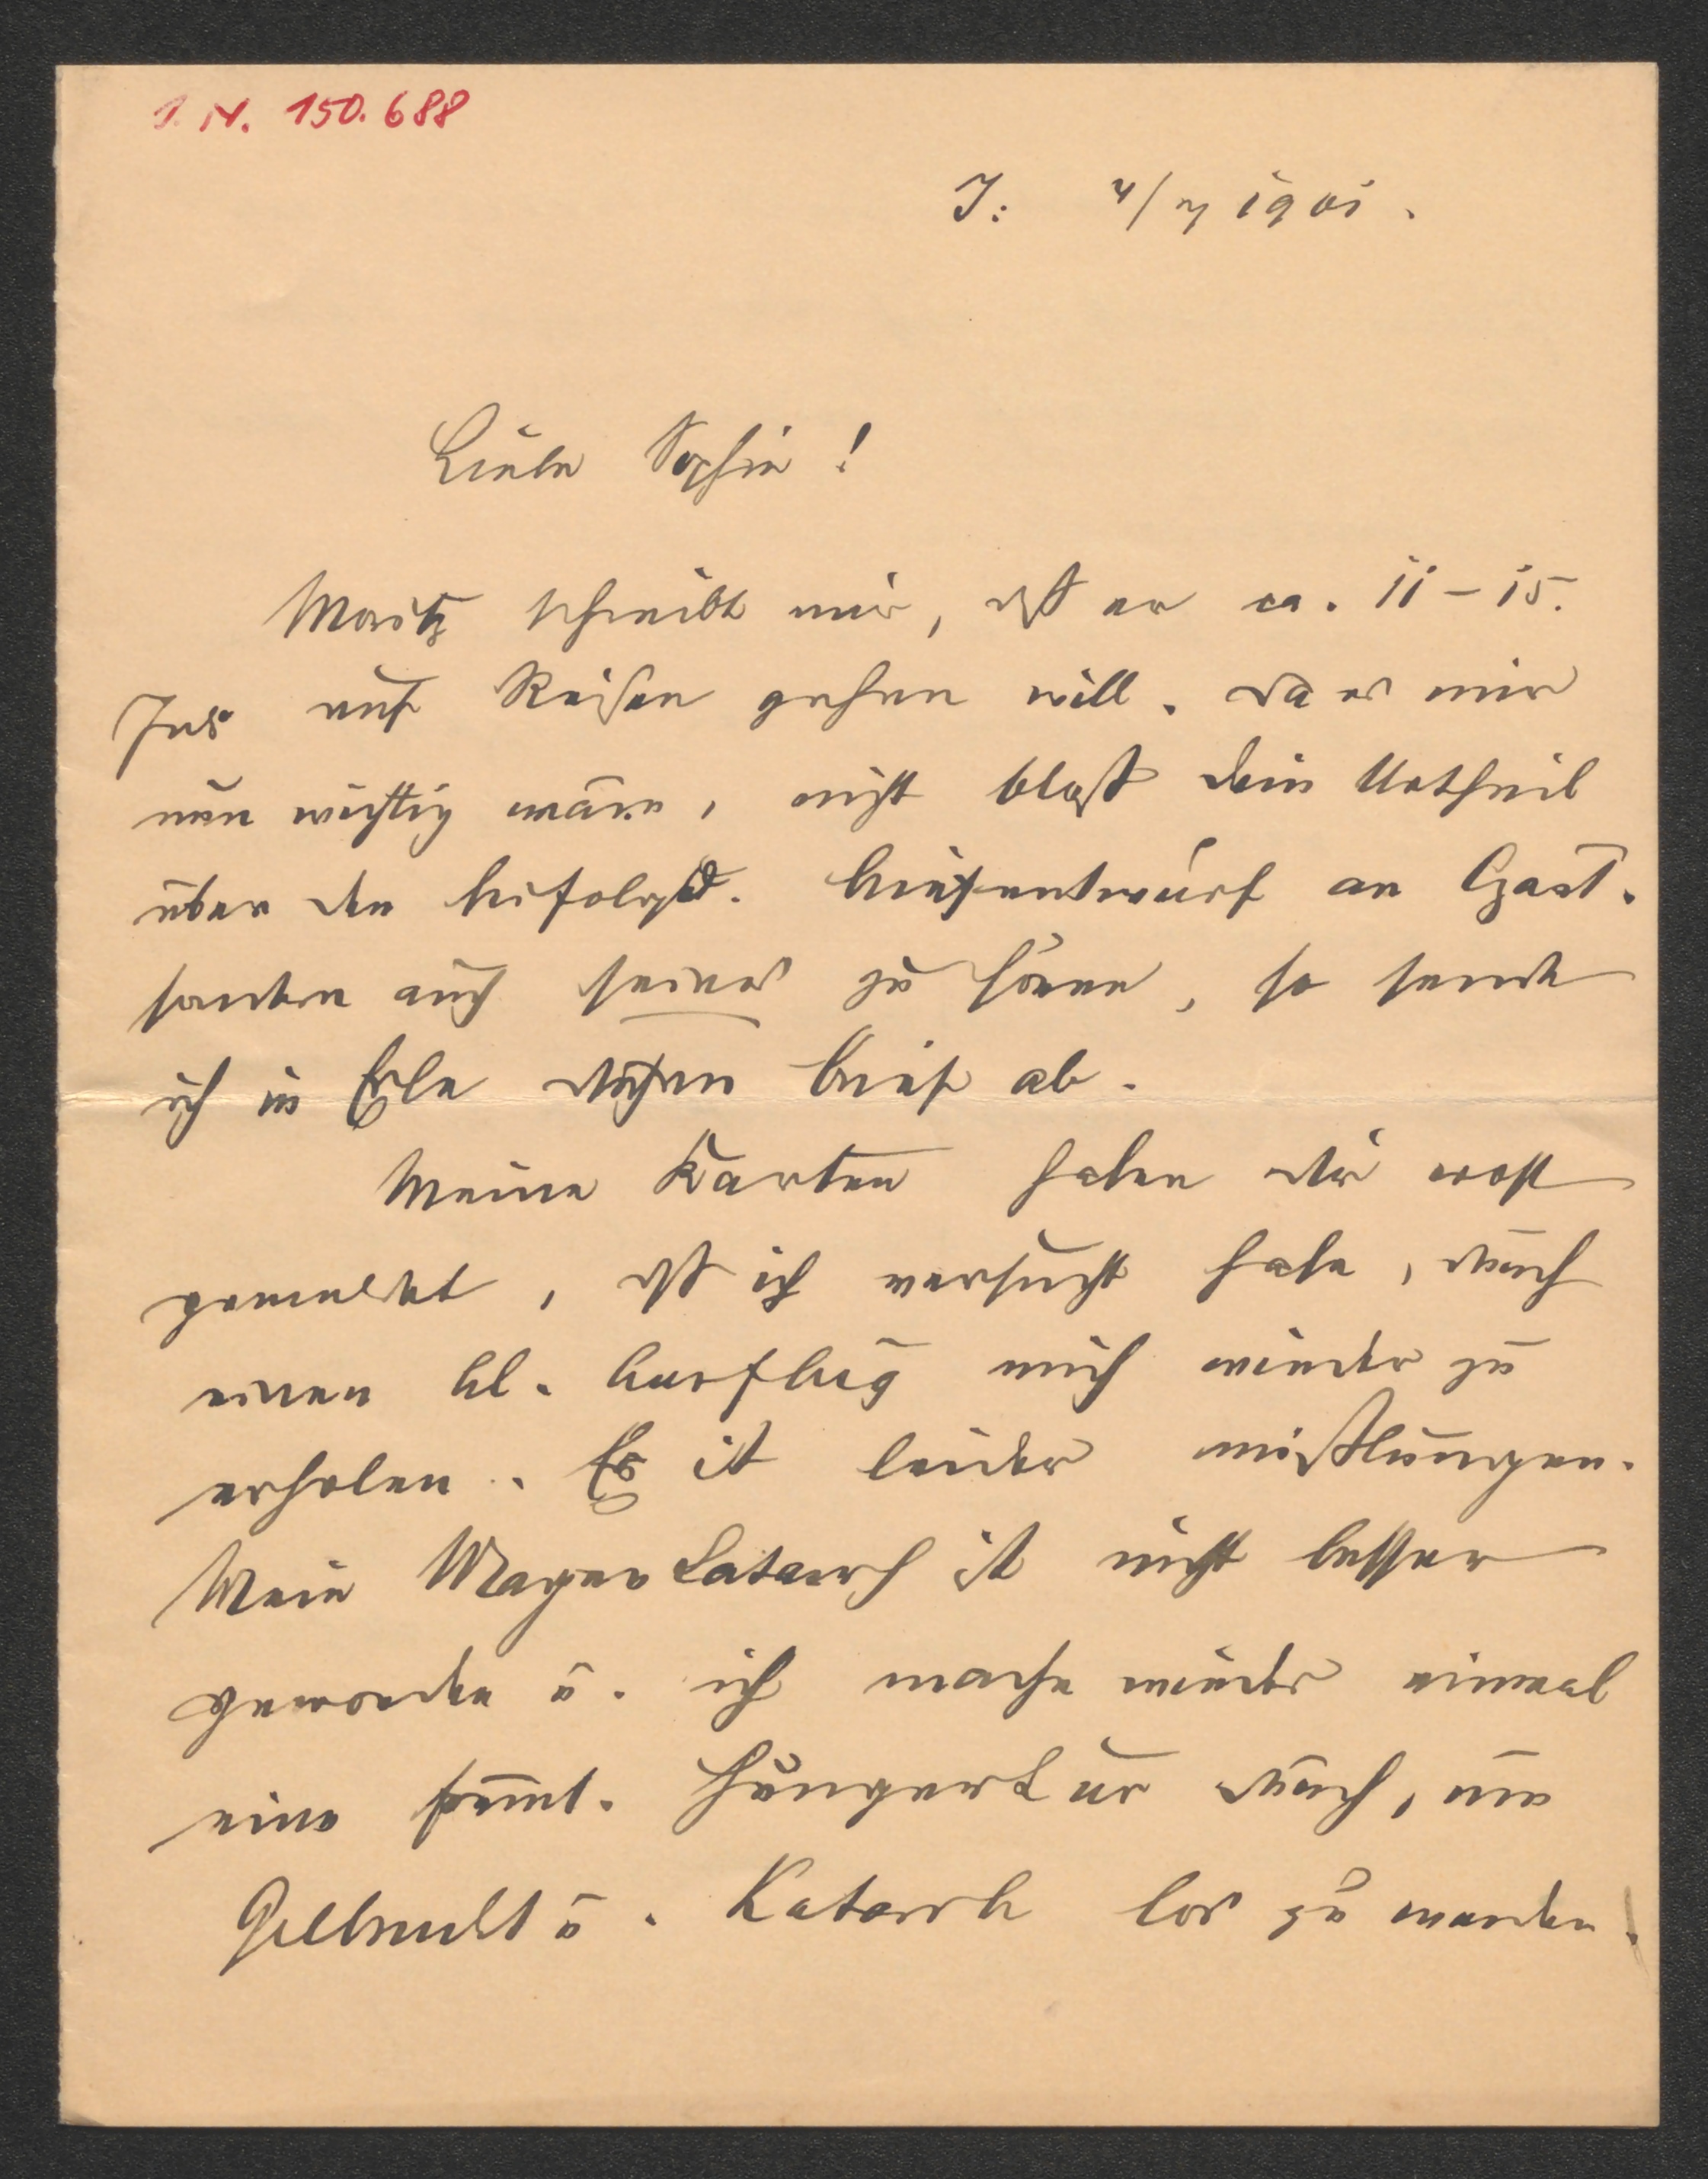 I. N. 150.688
I: 4/7 1901.
Liebe Sophie!
Moritz schreibt mir, dß er ca. 11–15.
Juli auf Reisen gehen will. Da es mir
nun wichtig wäre, nicht bloß dein Urtheil
über den beifolgd. Briefentwurf an
sondern auch seines zu hören, so sende
ich in Eile diesen Brief ab.
Meine Karten haben dir wohl
gemeldet, dß ich versucht habe, durch
einen kl. Ausflug mich wieder zu
erholen. Es ist leider mißlungen.
Mein Magenkatarrh ist nicht besser
geworden u. ich mache wieder einmal
eine Hungerkur durch, um
Gelbsucht u. Katarrh los zu werden.